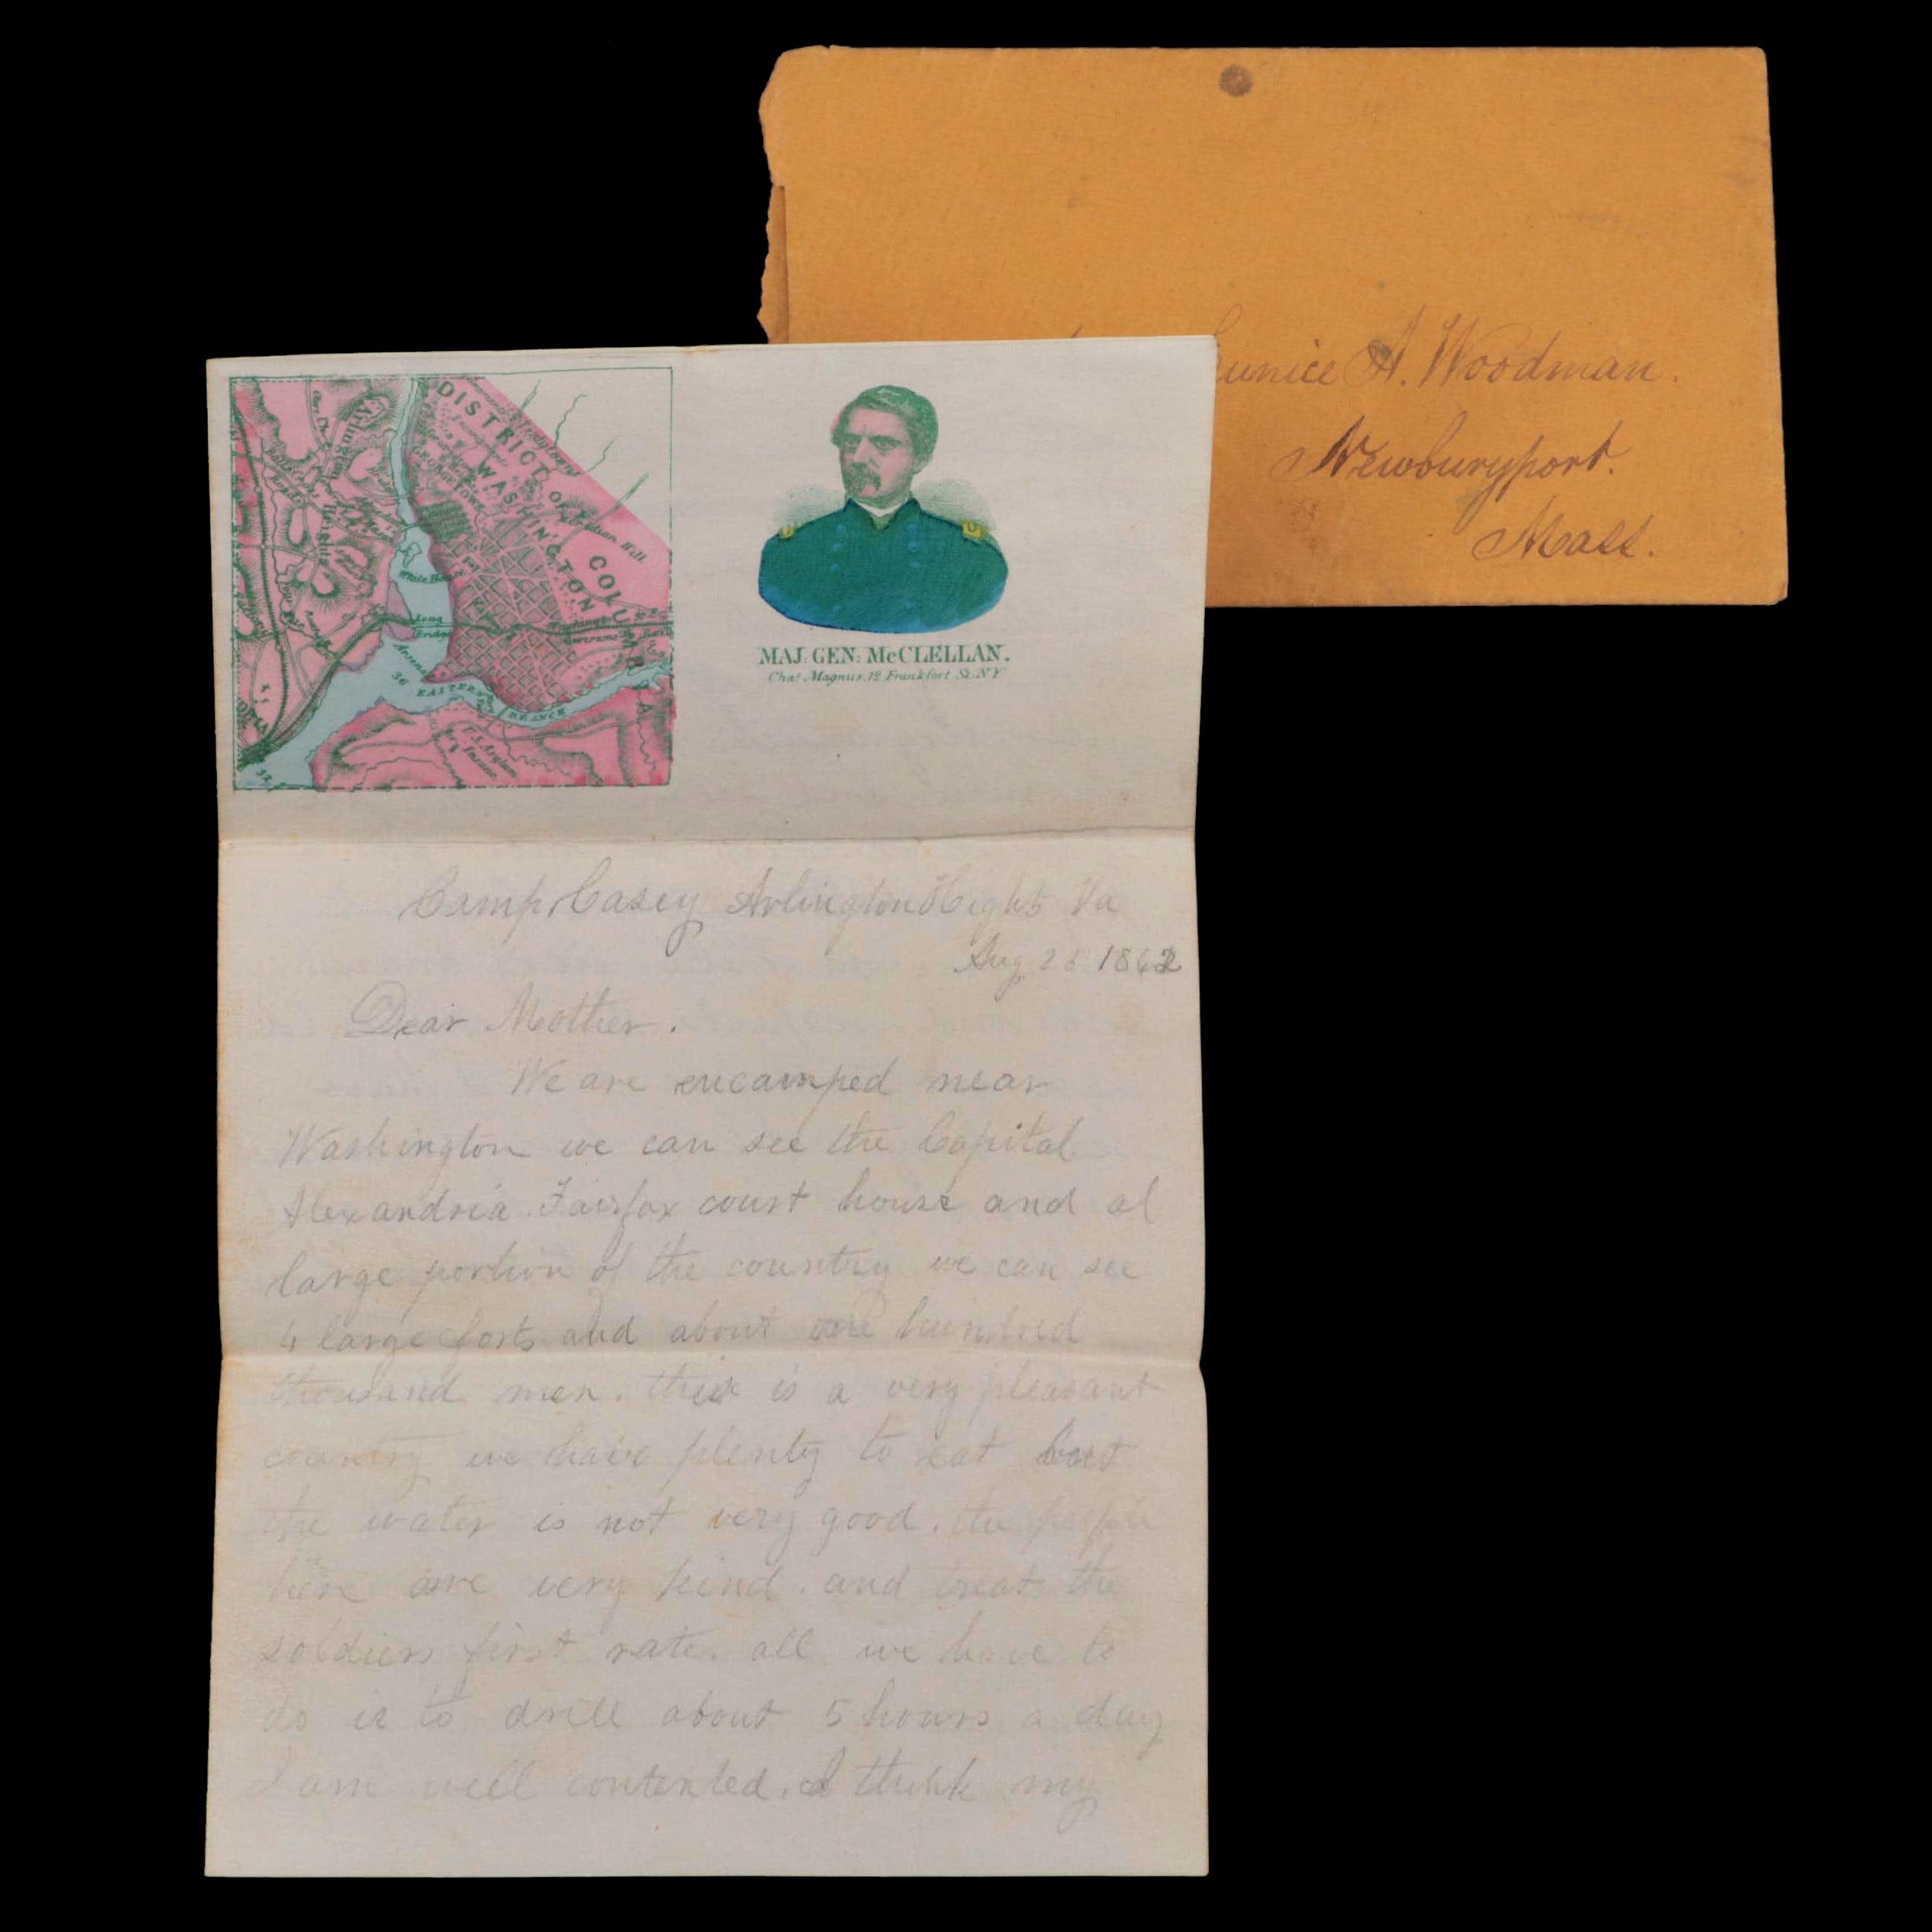 unice A. Woodman.
Newburyport.
Mass.
DISTRICT OF COLUMBIA
WASHINGTON
Arlington
Heights
Long
Bridge
Arsenal
36
EASTERN
BRANCH
32
MAJ: GEN: McCLELLAN.
Chas Magnus, 12 Frankfort St. NY
Camp Casey Arlington Hights Va
Aug 1862
Dear Mother.
We are encamped near
Washington we can see the Capital
Alexandria. Fairfax court house and al
large portion of the country we can see
4 large forts and about one hundred
thousand men. this is a very pleasant
country we have plenty to eat but
the water is not very good. the people
here are very kind. and treat the
soldiers first rate. all we have to
do is to drill about 5 hours a day
I am well contented. I think my